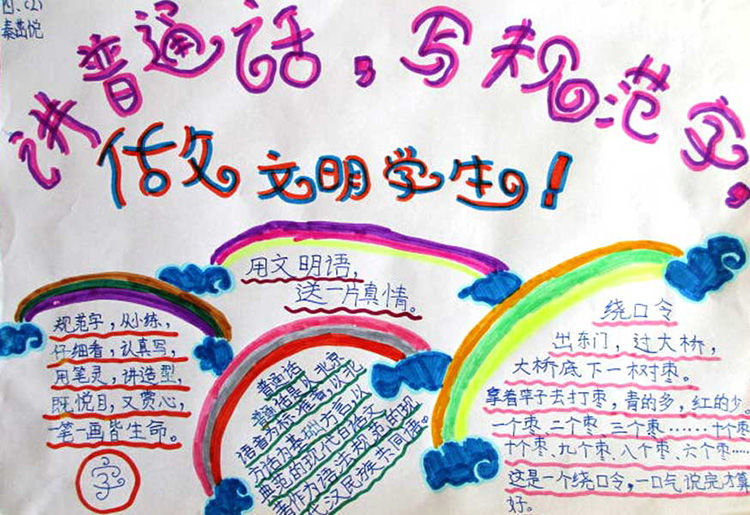 四、(2)
讲普通话,写规范字,
做文明学生!
规范字,从小练,
仔细看,认真写,
用笔灵,讲造型,
既悦目,又赏心,
一笔一画皆生命。
字
用文明语,
送一片真情。
普通话
普通话是以北京
语音为标准音,以北
方话为基础方言,以
典范的现代白话文
著作为语法规范的现
代汉民族共同语。
绕口令
出东门,过大桥,
大桥底下一树枣。
拿着竿子去打枣,青的多,红的少。
一个枣 二个枣、三个枣……十个枣
十个枣、九个枣、八个枣、六个枣……
这是一个绕口令,一口气说完才算
好。